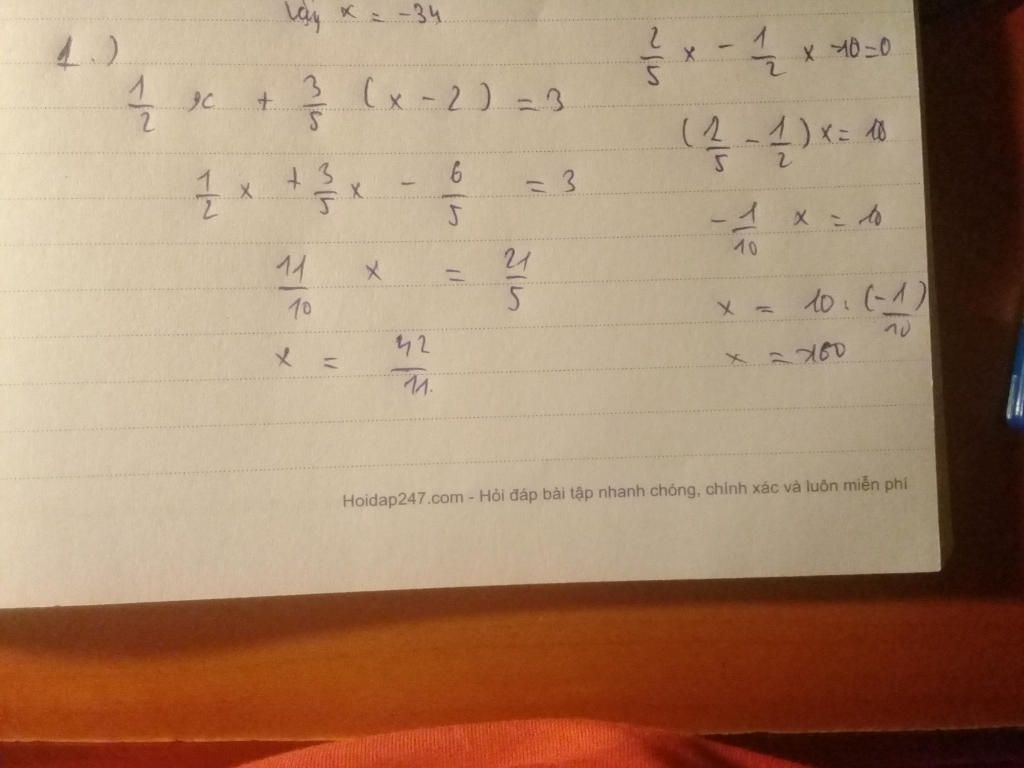 Vậy x = -34
1.)
1/2 x + 3/5 (x - 2) = 3
1/2 x + 3/5 x - 6/5 = 3
11/10 x = 21/5
x = 42/11.
2/5 x - 1/2 x - 10 = 0
(2/5 - 1/2) x = 10
-1/10 x = 10
x = 10 : (-1/10)
x =
Hoidap247.com - Hỏi đáp bài tập nhanh chóng, chính xác và luôn miễn phí